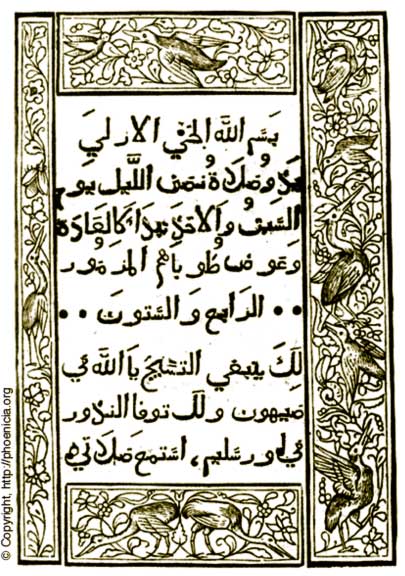 بسم الله الحي الازلي
بدو صلاة نصف الليل يوم
السبت والاحد تبدا كالعادة
وعوض طوباهم المزمور
•• الرابع والستون ••
لك ينبغي التسبيح يا الله في
صيهون ولك توفا الندور
في اورسليم، استمع صلاتي
© Copyright, http://phoenicia.org